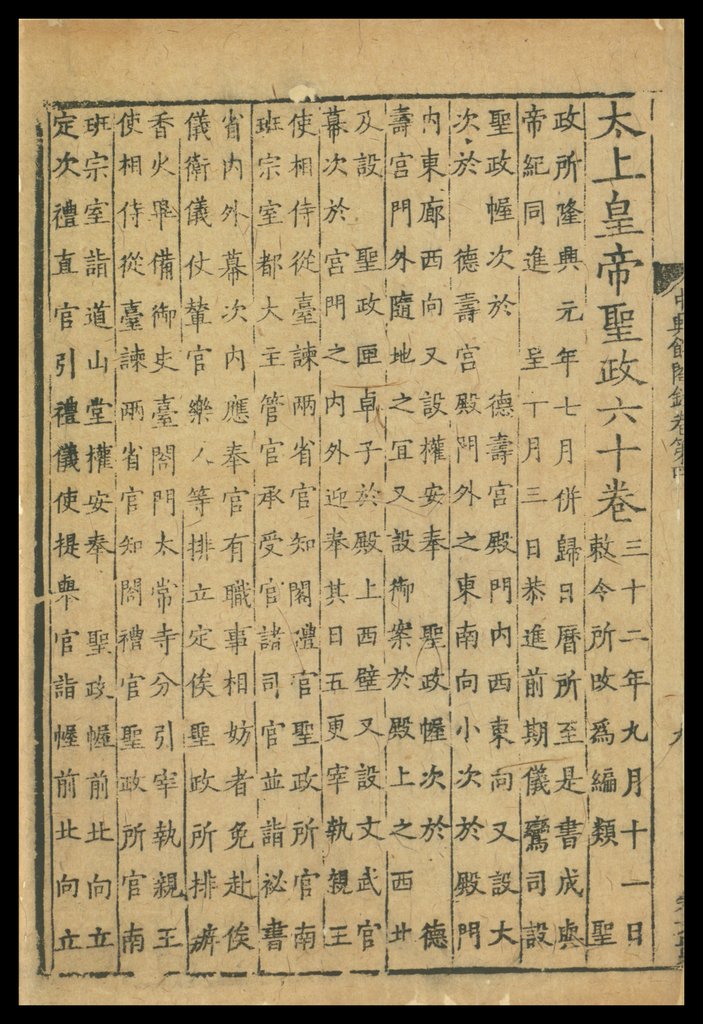 中興館閣錄卷第四
九
太上皇帝聖政六十卷
三十二年九月十一日
敕令所改爲編類　聖
政所隆興元年七月併歸日曆所至是書成與
帝紀同進　呈十月三日恭進前期儀鸞司設
聖政幄次於　德壽宮殿門內西東向又設大
次於　德壽宮殿門外之東南向小次於殿門
內東廊西向又設權安奉　聖政幄次於　德
壽宮門外隨地之宜又設御案於殿上之西北
及設　聖政匣卓子於殿上西壁又設文武官
幕次於　宮門之內外迎奉其日五更宰執親王
使相侍從臺諫兩省官知閤禮官聖政所官南
班宗室都大主管官承受官諸司官並詣祕書
省內外幕次內應奉官有職事相妨者免赴俟
儀衛儀仗輦官樂人等排立定俟聖政所排辦
香火畢備御史臺閤門太常寺分引宰執親王
使相侍從臺諫兩省官知閤禮官聖政所官南
班宗室詣道山堂權安奉　聖政幄前北向立
定次禮直官引禮儀使提舉官詣幄前北向立